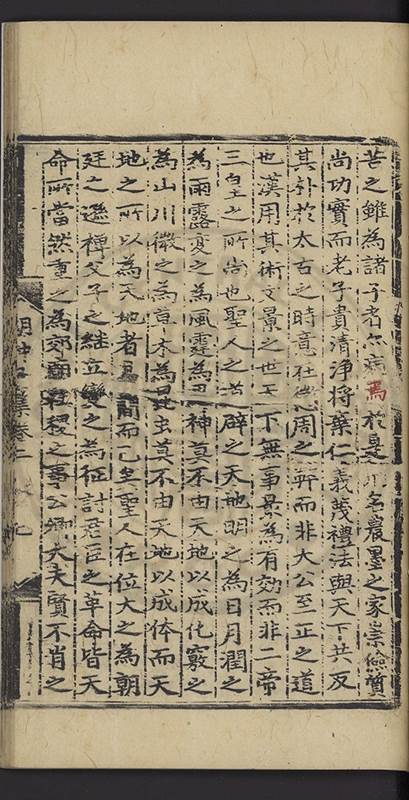 苦之雖為諸子者亦病焉於是刑名農墨之家崇儉質
尚功實而老子貴清淨將棄仁義蔑禮法與天下共反
其朴於太古之時意在也周之弊而非大公至正之道
也漢用其術文景之世天下無事景為有効而非二帝
三皇之所尚也聖人之道辟之天地明之為日月潤之
為雨露変之為風霆為神莫不由天地以成化竅之
為山川微之為草木為昆虫莫不由天地以成体而天
地之所以為天地者而已矣聖人在位大之為朝
廷之遜禅父子之継立變之為征討君臣之革命皆天
命所當然重之為郊廟社稷之事公卿大夫賢不肖之
卷二